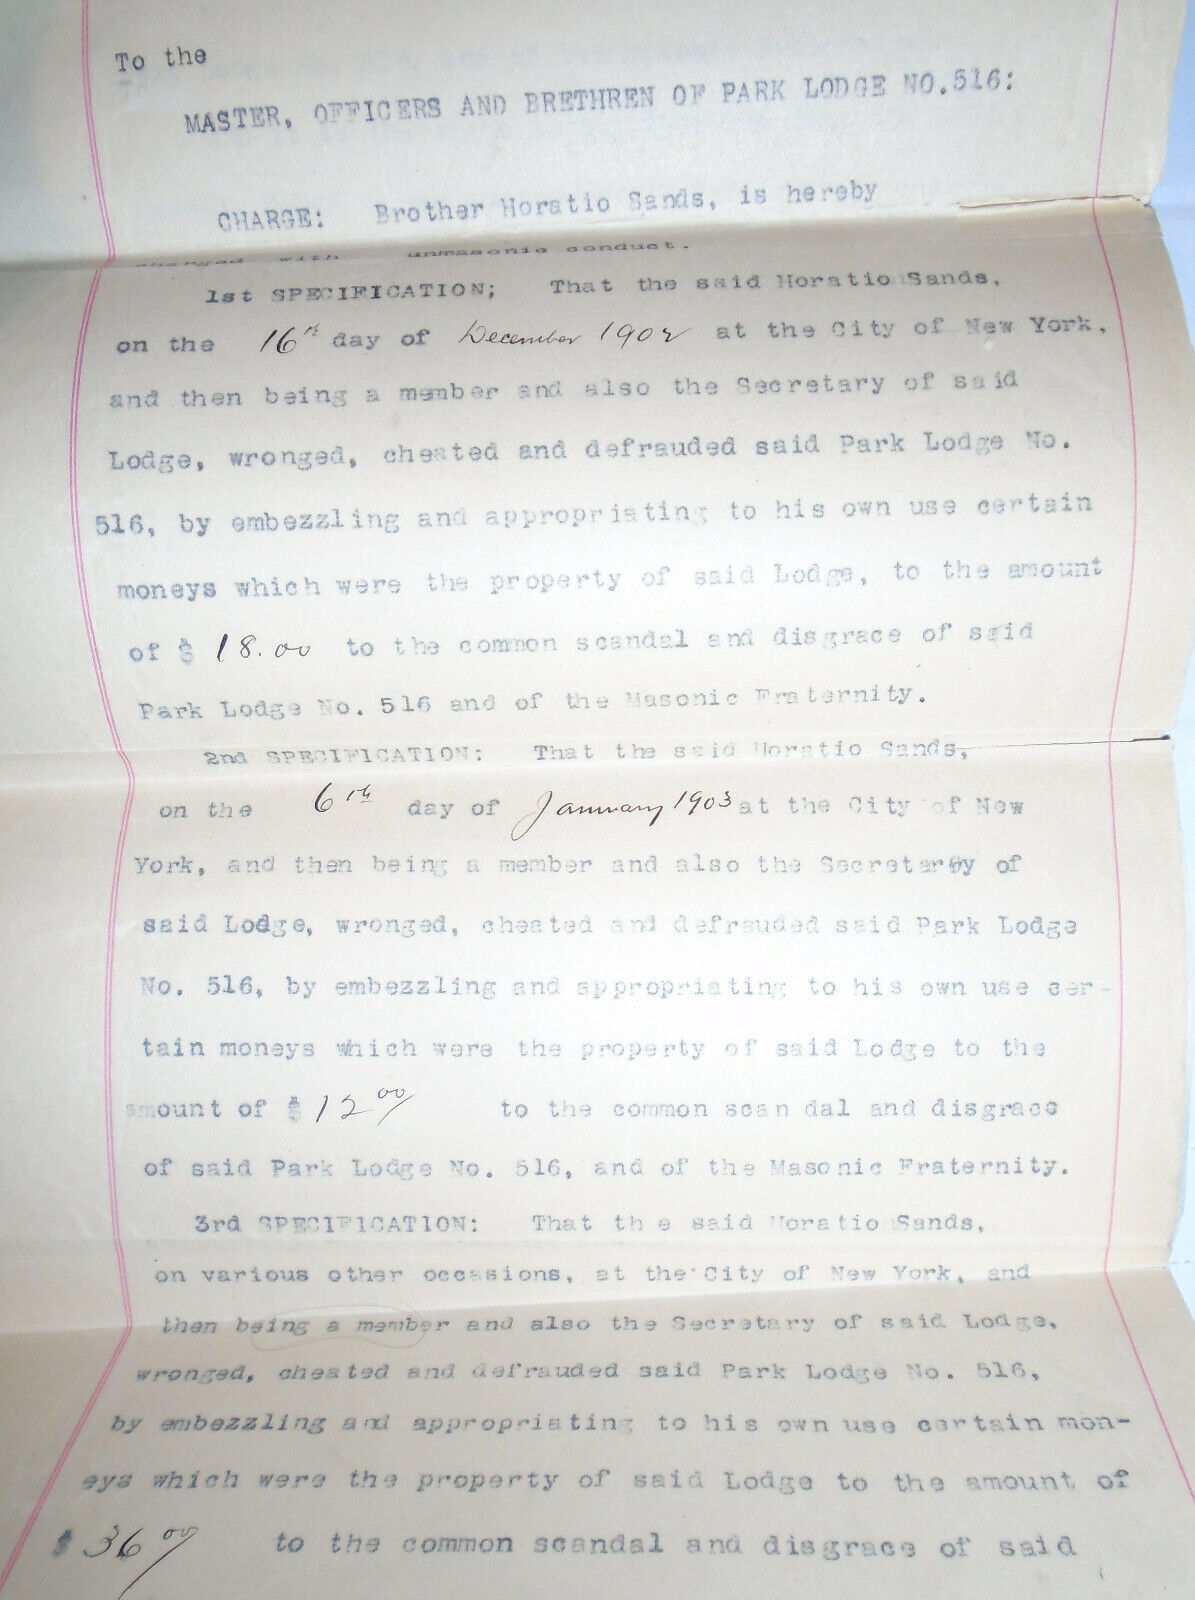 To the
MASTER, OFFICERS AND BRETHREN OF PARK LODGE NO.516:
CHARGE: Brother Horatio Sands, is hereby
charged with unmasonic conduct.
1st SPECIFICATION; That the said Horatio Sands,
on the 16th day of December 1902 at the City of New York,
and then being a member and also the Secretary of said
Lodge, wronged, cheated and defrauded said Park Lodge No.
516, by embezzling and appropriating to his own use certain
moneys which were the property of said Lodge, to the amount
of $ 18.00 to the common scandal and disgrace of said
Park Lodge No. 516 and of the Masonic Fraternity.
2nd SPECIFICATION: That the said Horatio Sands,
on the 6th day of January 1903 at the City of New
York, and then being a member and also the Secretary of
said Lodge, wronged, cheated and defrauded said Park Lodge
No. 516, by embezzling and appropriating to his own use cer-
tain moneys which were the property of said Lodge to the
amount of $ 12 00/ to the common scan dal and disgrace
of said Park Lodge No. 516, and of the Masonic Fraternity.
3rd SPECIFICATION: That the said Horatio Sands,
on various other occasions, at the City of New York, and
then being a member and also the Secretary of said Lodge,
wronged, cheated and defrauded said Park Lodge No. 516,
by embezzling and appropriating to his own use certain mon-
eys which were the property of said Lodge to the amount of
$ 36 00/ to the common scandal and disgrace of said